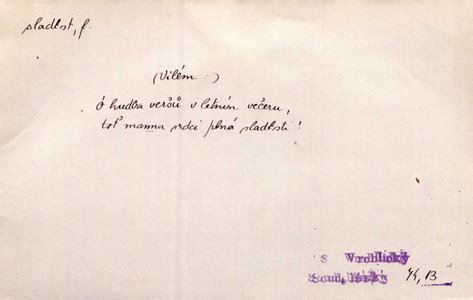 sladkost, f.
(Vilém :)
Ó hudba veršů v letním večeru,
toť manna srdci plná sladkosti!
s Vrchlický
Soud, lásky 74, B